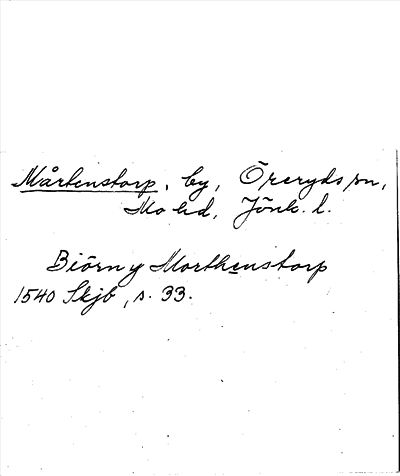 Mårtenstorp, by, Öreryds sn,
Mo hd, Jönk. l.
Biörn y Morthenstorp
1540 Skjb, s. 33.